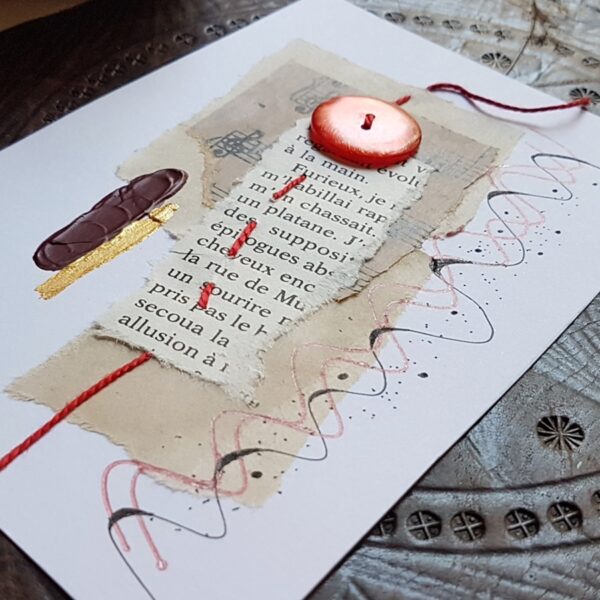 à la main.
Furieux, je
m'habillai rap
m'en chassait.
un platane. J'
des supposit
épilogues abs
cheveux enc
la rue de Mu
un sourire
pris pas le
secoua la
allusion à